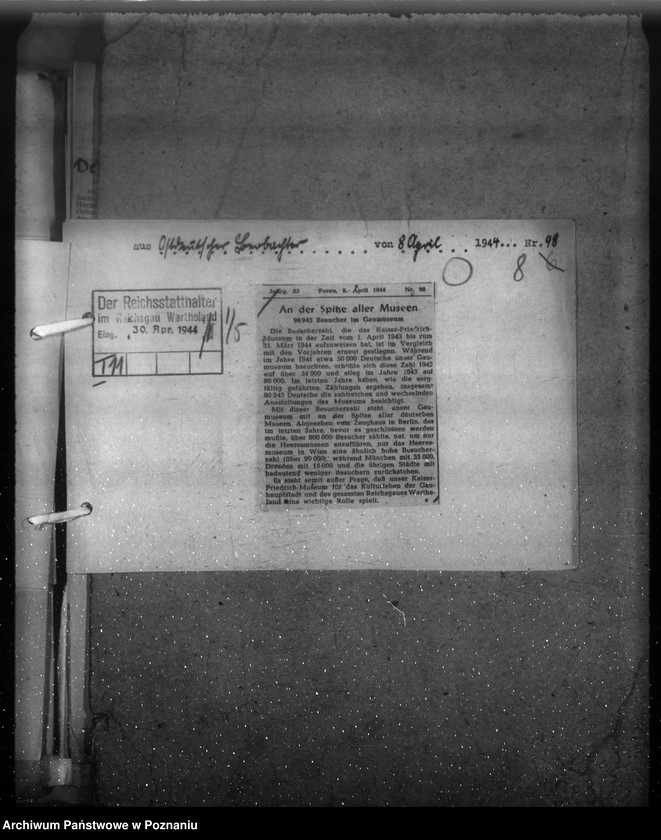 De
aus Ostdeutscher Beobachter von 8 April 1944... Nr. 98
8 6
Der Reichsstatthalter
im Reichsgau Wartheland
Eing. 30. Apr. 1944
1/5
Jahrg. Posen, 8. April 1944 Nr. 98
An der Spitze aller Museen
90 943 Besucher im Gaumuseum
Die Besucherzahl, die das Kaiser-Friedrich-
Museum in der Zeit vom 1. April 1943 bis zum
31. März 1944 aufzuweisen hat, ist im Vergleich
mit den Vorjahren erneut gestiegen. Während
im Jahre 1941 etwa 30 000 Deutsche unser Gau-
museum besuchten, erhöhte sich diese Zahl 1942
auf über 54 000 und stieg im Jahre 1943 auf
80 000. Im letzten Jahre haben, wie die sorg-
fältig geführten Zählungen ergeben, insgesamt
90 943 Deutsche die zahlreichen und wechselnden
Ausstellungen des Museums besichtigt.
Mit dieser Besucherzahl steht unser Gau-
museum mit an der Spitze aller deutschen
Museen. Abgesehen vom Zeughaus in Berlin, das
im letzten Jahre, bevor es geschlossen werden
mußte, über 800 000 Besucher zählte, hat, um nur
die Heeresmuseen anzuführen, nur das Heeres-
museum in Wien eine ähnlich hohe Besucher-
zahl (über 90 000), während München mit 35 000,
Dresden mit 15 000 und die übrigen Städte mit
bedeutend weniger Besuchern zurückstehen.
Es steht somit außer Frage, daß unser Kaiser-
Friedrich-Museum für das Kulturleben der Gau-
hauptstadt und des gesamten Reichsgaues Warthe-
land eine wichtige Rolle spielt.
Archiwum Państwowe w Poznaniu